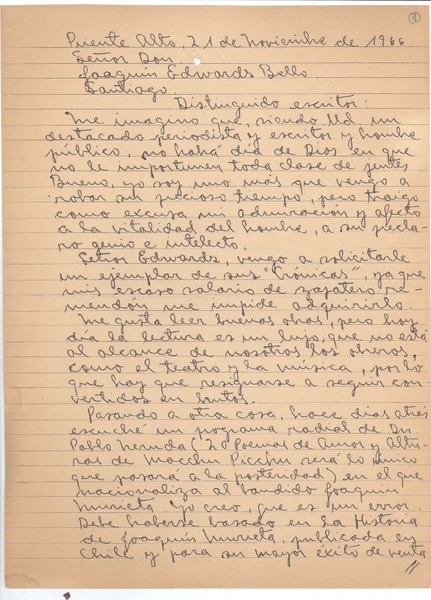 1
Puente Alto, 21 de Noviembre de 1966
Señor Don
Joaquín Edwards Bello
Santiago.
Distinguido escritor:
Me imagino que, siendo Ud. un
destacado periodista y escritor y hombre
público, no habrá día de Dios en que
no le importunen toda clase de jentes
Bueno, yo soy uno más que vengo a
robar su precioso tiempo, pero traigo
como excusa mi admiración y afecto
a la vitalidad del hombre, a su precla-
ro genio e intelecto.
Señor Edwards, vengo a solicitarle
un ejemplar de sus "Crónicas", ya que
mis escaso salario de zapatero re-
mendón me impide adquirirlo.
Me gusta leer buenas obras, pero hoy
día la lectura es un lujo, que no está
al alcance de nosotros los obreros,
como el teatro y la música, por lo
que hay que resignarse a seguir con-
vertidos en brutos.
Pasando a otra cosa, hace días atrás
escuché un programa radial de Dn.
Pablo Neruda (20 Poemas de Amor y Altu-
ras de Macchu Picchu será lo único
que pasará a la posteridad) en el que
nacionaliza al bandido Joaquín
Murieta. Yo creo, que es un error.
Debe haberse basado en la Historia
de Joaquín Murieta, publicada en
Chile y para su mayor éxito de venta
//